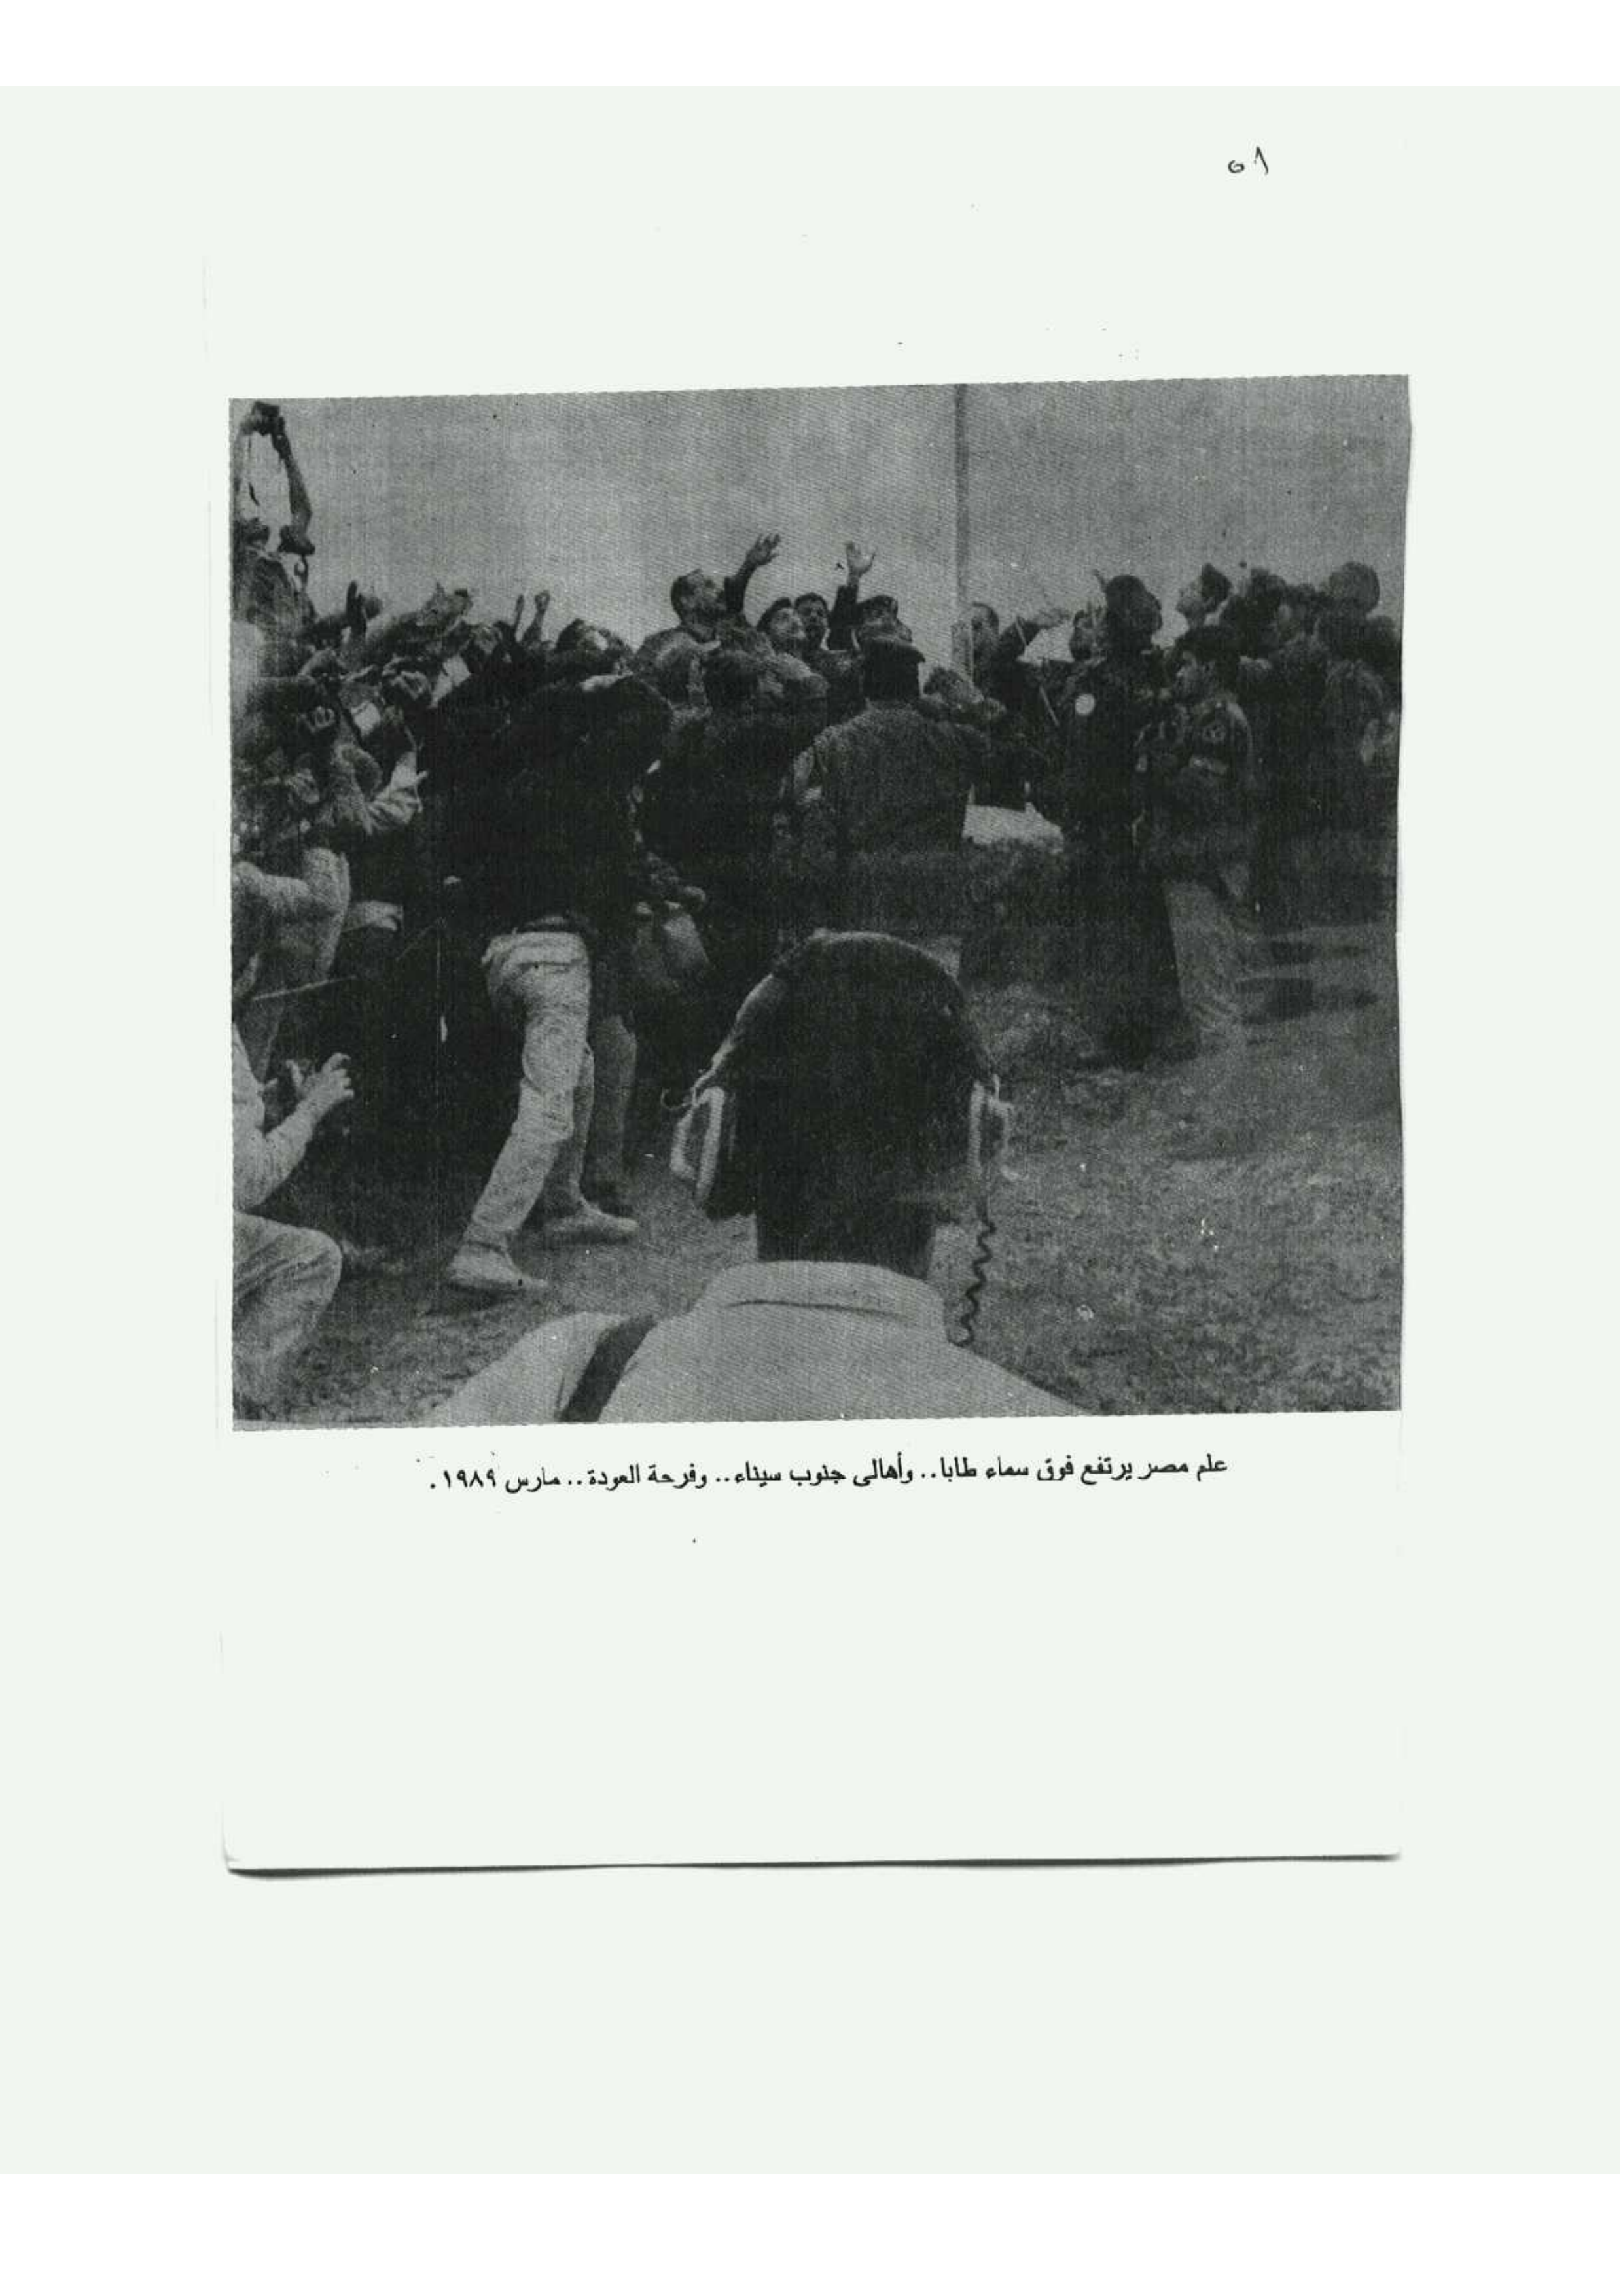 علم مصر يرتفع فوق سماء طابا.. وأهالى جنوب سيناء.. وفرحة العودة.. مارس ١٩٨٩.